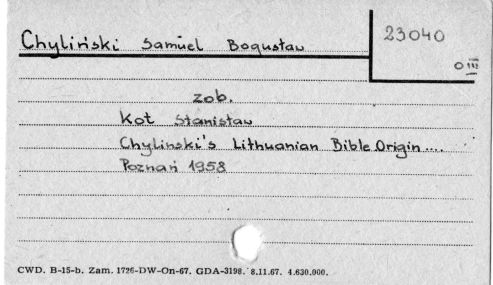 Chyliński Samuel Bogusław
23040
0 III
zob.
Kot Stanisław
Chylinski's Lithuanian Bible Origin....
Poznań 1958
CWD. B-15-b. Zam. 1726-DW-On-67. GDA-3198. 8.11.67. 4.630.000.